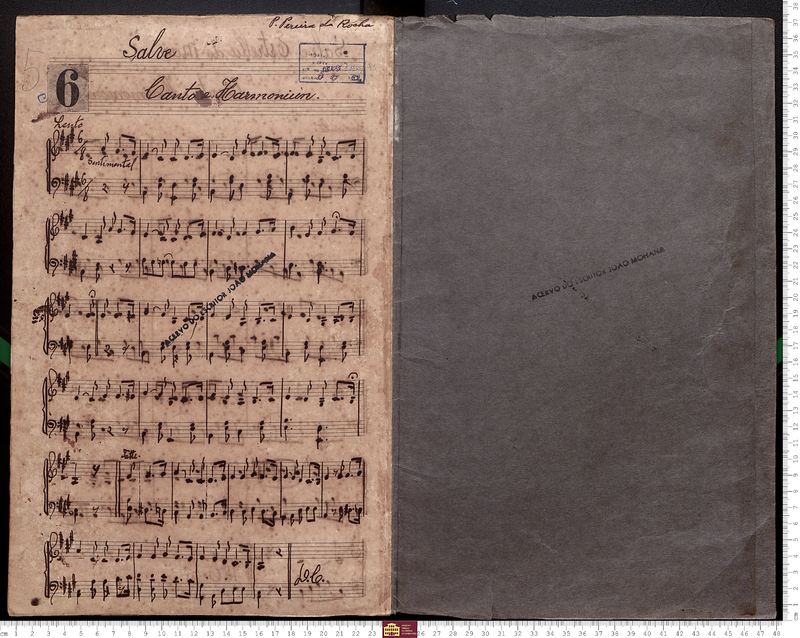 P. Pereira da Rocha
Salve
6
Canto e Harmonium.
Lento
Sentimental
ACERVO DO ESCRITOR JOÃO MOHANA
D.C.
ACERVO DO ESCRITOR JOÃO MOHANA